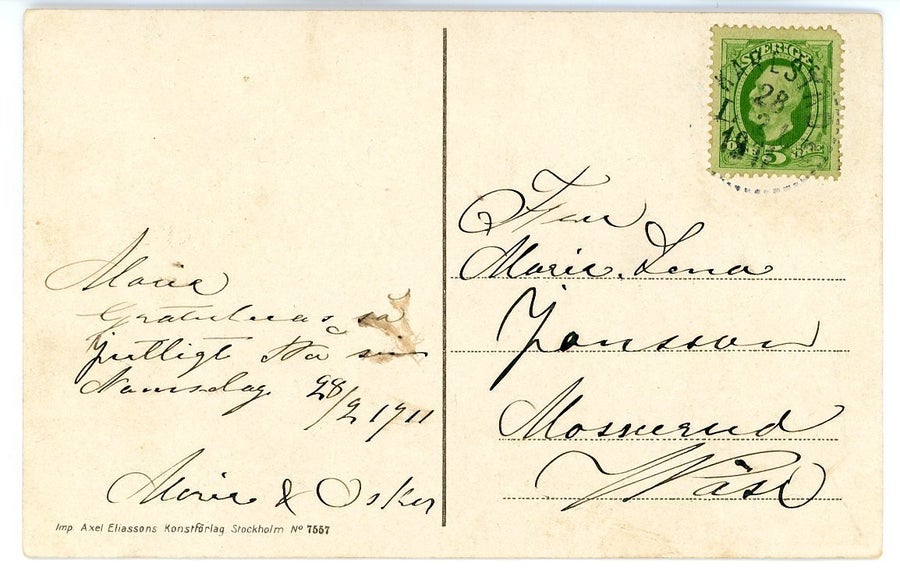 Maria
Gratuleras så
jntligt På sin
Namsdag 28/2 1911
Maria & Oskar
Imp. Axel Eliassons Konstförlag Stockholm No 7557
SVERIGE
28
5
Fru
Maria. Lena
Jonsson
Mosserud
Wäse